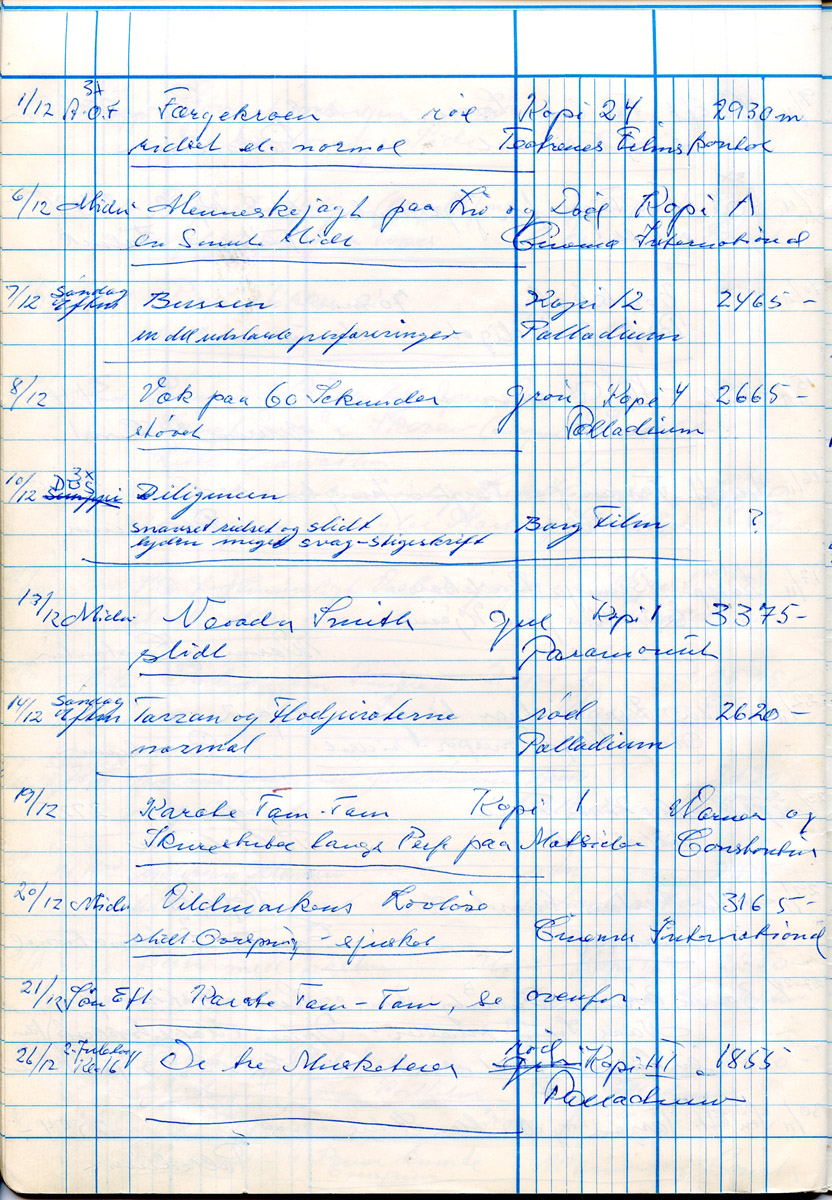 1/12 3x A.O.F Færgekroen rød Kopi 24 2930 m
ridset el. normal Teatrenes Films Kontor
6/12 Midn. Menneskejagt paa Liv og Død Kopi A
en Smule slidt Cinema International
7/12 Søndag Eftm Bussen Kopi 12 2465 -
en del udslaaede perforeringer Palladium
8/12 Væk paa 60 Sekunder grøn Kopi 4 2665 -
støvet Palladium
10/12 3x Diligencen
snavset ridset og slidt Borg Film ?
lyden meget svag - Stigeskrift
13/12 Midn Nevada Smith gul Kopi 1 3375 -
slidt Paramount
14/12 Søndag Eftm Tarzan og Flodpiraterne rød 2620 -
normal Palladium
19/12 Karate Tam-Tam Kopi 1 Warner og
lange Perf paa Constantin
20/12 Midn Vildmarkens Lovløse 3165 -
slidt Cinema International
21/12 Søn Eft Karate Tam-Tam, se ovenfor
26/12 2. Juledag Kl. 16 De tre Musketerer rød Kopi III 1855
Palladium